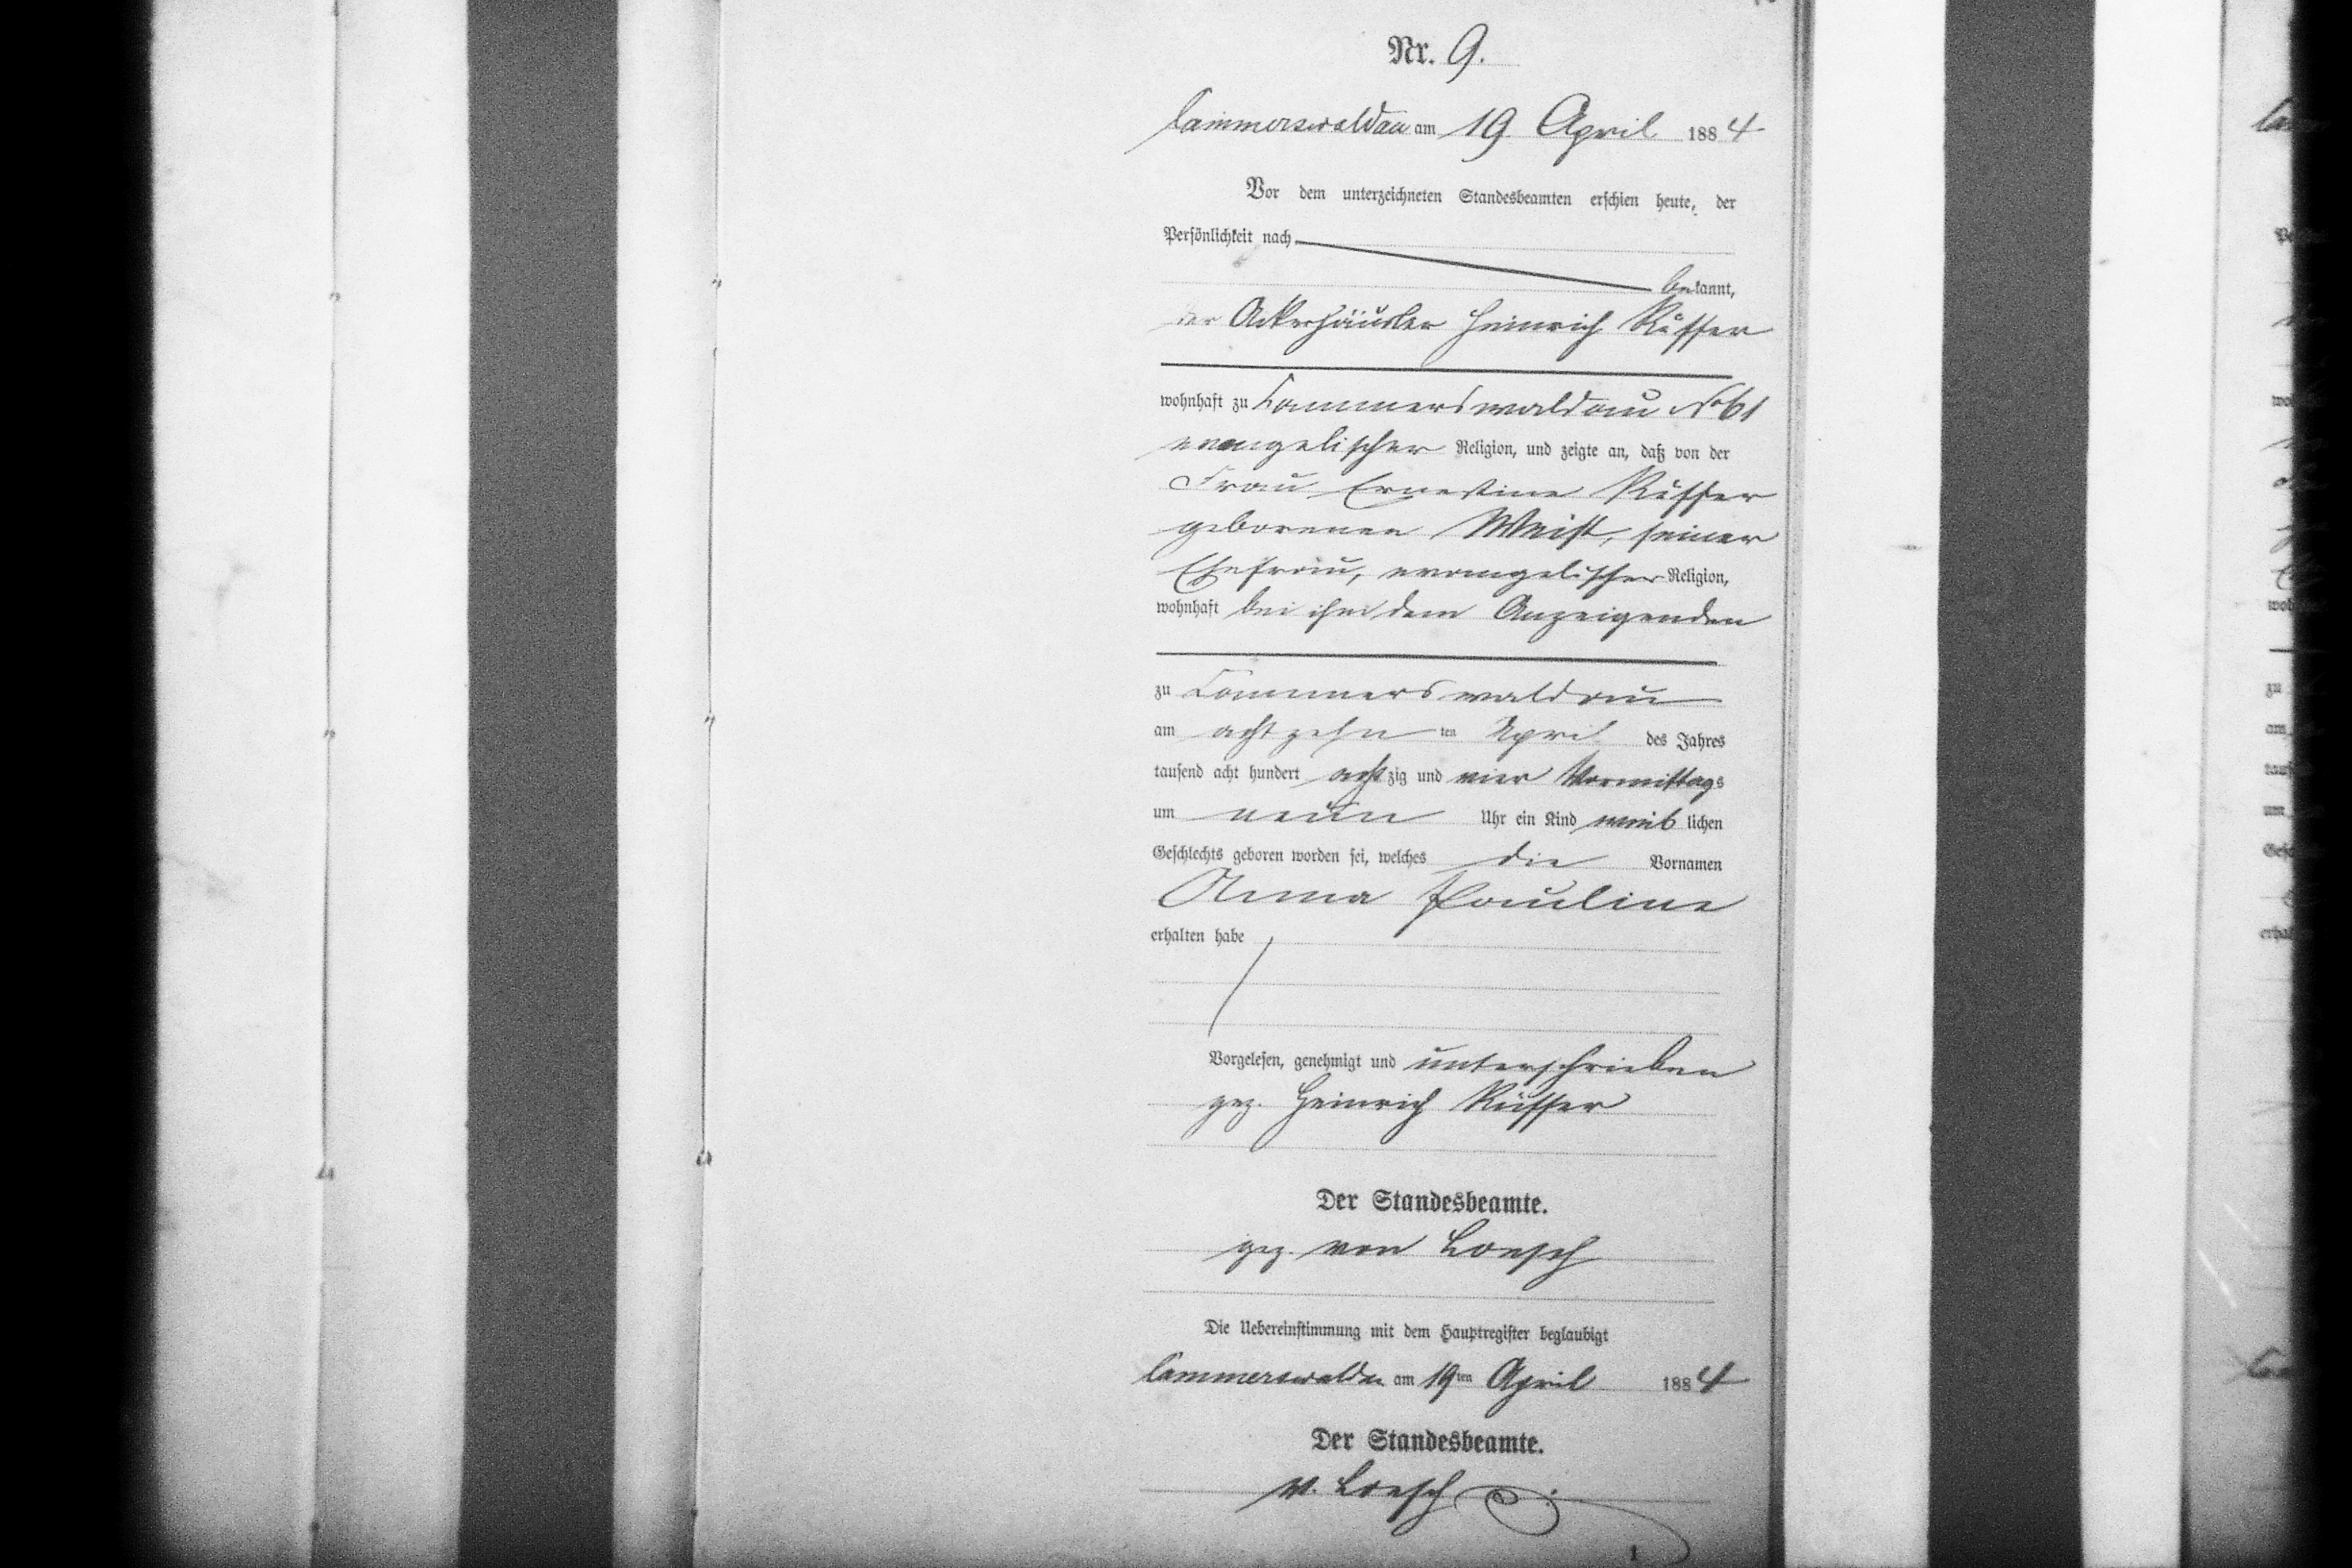 Nr. 9.
Cammerswaldau am 19 April 1884
Vor dem unterzeichneten Standesbeamten erschien heute, der
Persönlichkeit nach
bekannt,
der Ackerhäusler Heinrich Rüffer
wohnhaft zu Cammerswaldau No 61
evangelischer Religion, und zeigte an, daß von der
Frau Ernestine Rüffer
geborenen Weist, seiner
Ehefrau, evangelischer Religion,
wohnhaft bei ihm dem Anzeigenden
zu Cammerswaldau
am achtzehn ten April des Jahres
tausend acht hundert achtzig und vier Vormittags
um neun Uhr ein Kind weiblichen
Geschlechts geboren worden sei, welches die Vornamen
Anna Pauline
erhalten habe
Vorgelesen, genehmigt und unterschrieben
gez. Heinrich Rüffer
Der Standesbeamte.
gez. von Loesch
Die Uebereinstimmung mit dem Hauptregister beglaubigt
Cammerswaldau am 19ten April 1884
Der Standesbeamte.
v. Loesch
1